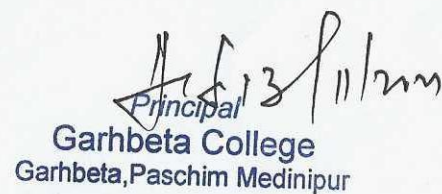 Principal
Garhbeta College
Garhbeta,Paschim Medinipur